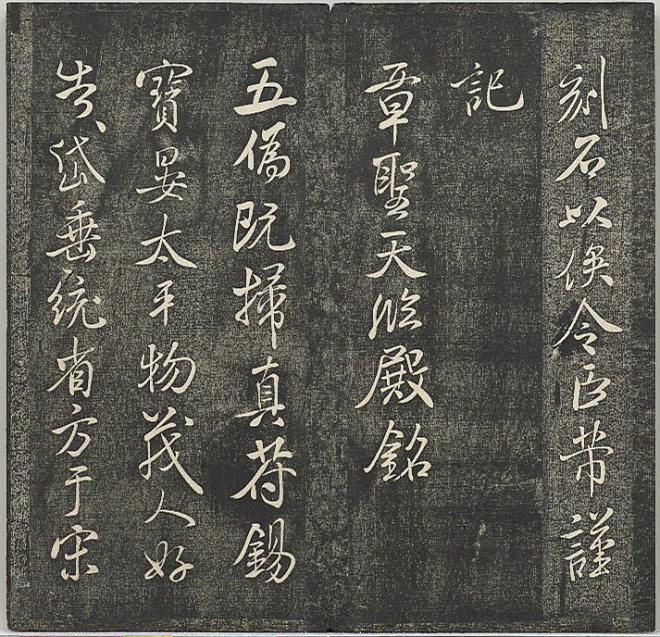 刻石以俟令臣芾謹
記
章聖天臨殿銘
五偽既掃真苻錫
寶晏太平物茂人好
告岱垂統省方于宋